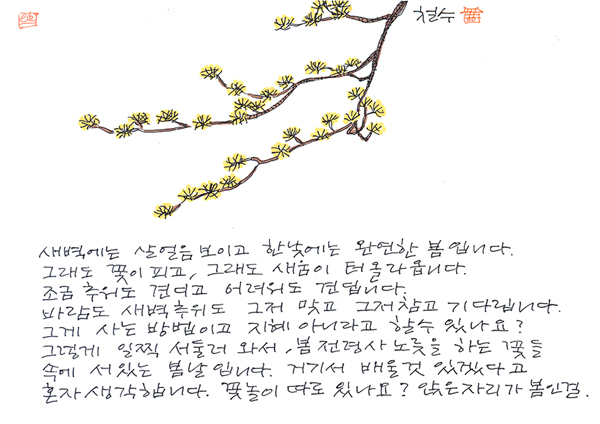 철수
새벽에는 살얼음 보이고 한낮에는 완연한 봄입니다.
그래도 꽃이 피고, 그래도 새움이 터 올라옵니다.
조금 추워도 견디고 어려워도 견딥니다.
바람도 새벽추위도 그저 맞고 그저참고 기다립니다.
그게 사는 방법이고 지혜 아니라고 할수 있나요?
그렇게 일찍 서둘러 와서, 봄 전령사 노릇을 하는 꽃들
속에 서있는 봄날 입니다. 거기서 배울것 있겠다고
혼자 생각합니다. 꽃놀이 따로 있나요? 앉은자리가 봄인걸.